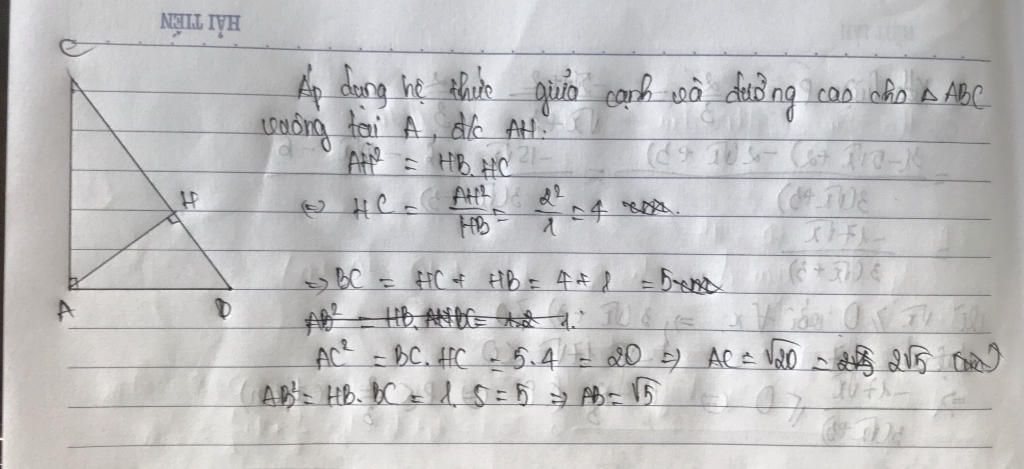 HẢI TIẾN
C
Áp dụng hệ thức giữa cạnh và đường cao cho △ ABC
vuông tại A, đ/c AH:
AH² = HB.HC
H
⇔ HC = AH²/HB = 2²/1 = 4
⇒ BC = HC + HB = 4 + 1 = 5
A
B
AB² = HB.
AC² = BC.HC = 5.4 = 20 ⇒ AC = √20 = 2√5
AB² = HB.BC = 1.5 = 5 ⇒ AB = √5